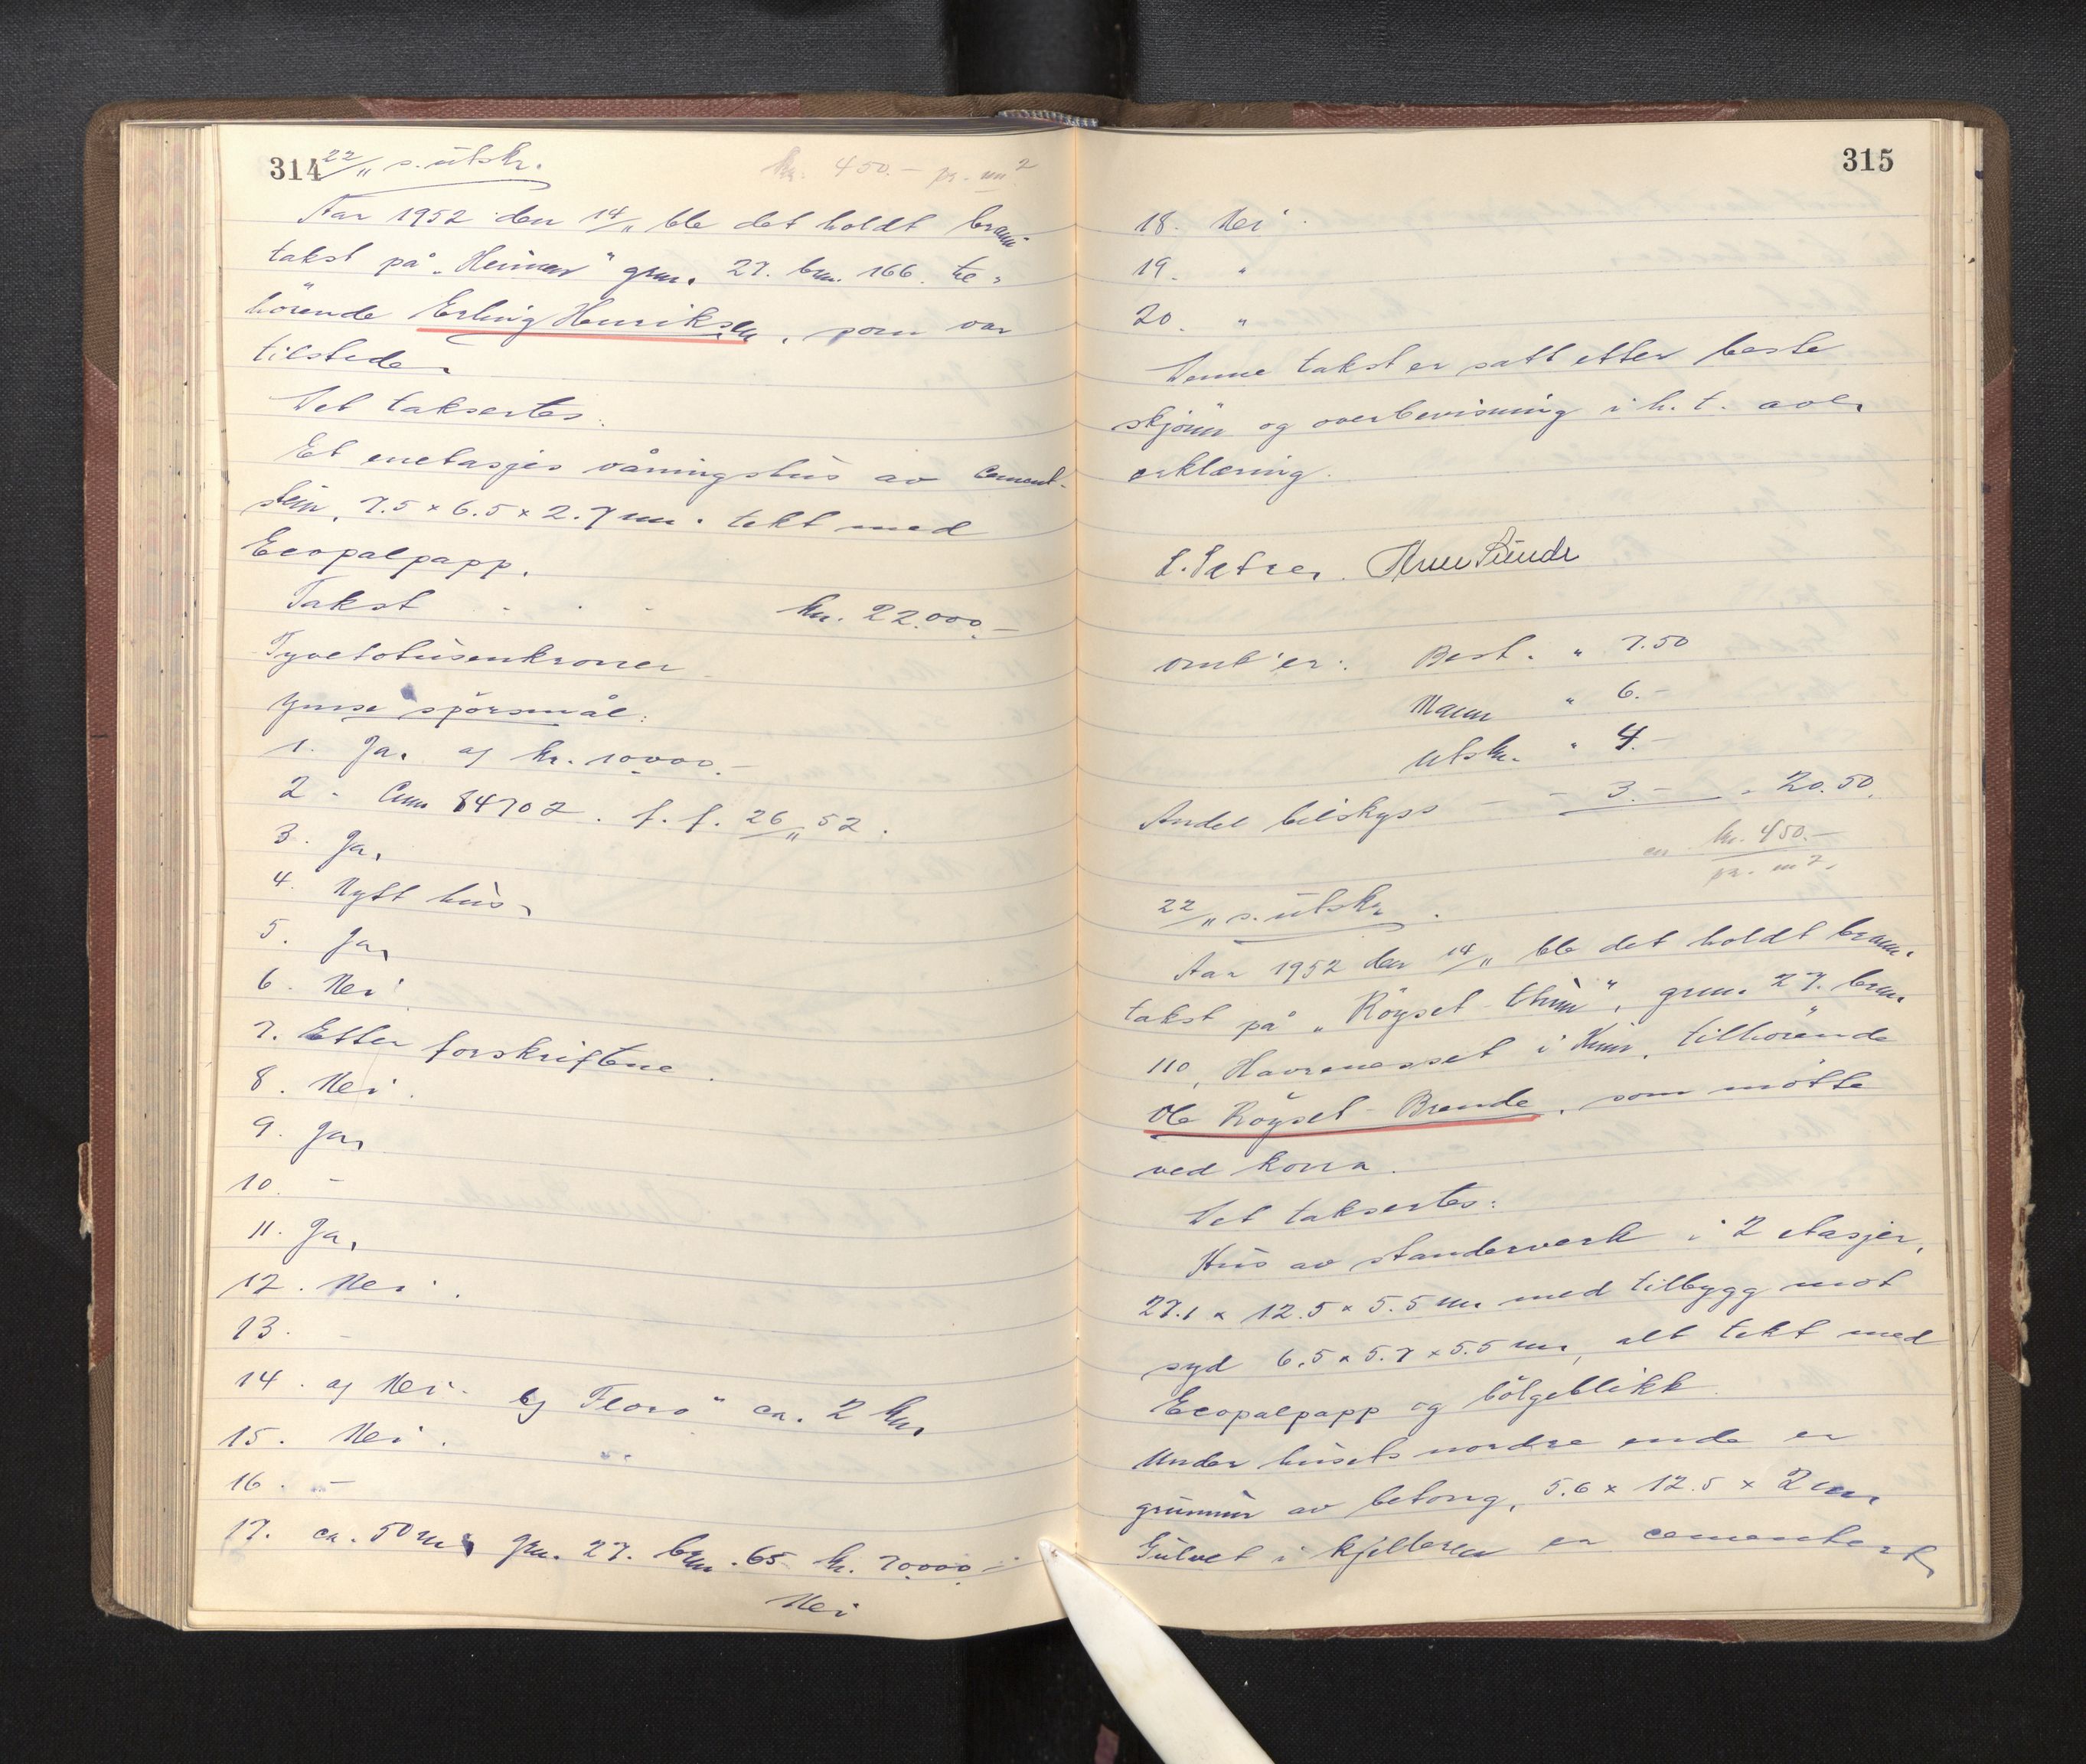 314
22/11 s. utskr.
kr. 450.- pr. m²
Aar 1952 den 14/11 ble det holdt brann-
takst på "Heimen" grn. 27. brn. 166. til-
hörende Erling Henriksen, som var
tilstede.
Det taksertes:
Et enetasjes våningshus av cement-
stein, 7.5 x 6.5 x 2.7 m. tekt med
Ecopalpapp.
Takst . . . kr. 22.000.-
Tyvetotusenkroner
Ymse spörsmål:
1. Ja. a) kr. 10000.-
2. Cum 84702. f. f. 26/11 52.
3. Ja.
4. Nytt hus.
5. Ja.
6. Nei.
7. Etter forskriftene.
8. Nei.
9. Ja.
10. -
11. Ja.
12. Nei.
13. -
14. a) Nei. b) "Florö" ca. 2 km
15. Nei.
16. -
17. ca. 50 m. grn. 27. brn. 65 kr. 70000.-
Nei
315
18. Nei.
19. "
20. "
Denne takst er satt etter beste
skjönn og overbevisning i h. t. avl.
erklæring.
L. Sætrer.
omb'er: Best. " 7.50
Mann " 6.-
Utskr. " 4.-
Andel bilskyss - - 3.- " 20.50.
kr. 450.-
pr. m².
22/11 s. utskr.
Aar 1952 den 14/11 ble det holdt brann-
takst på "Röyset-thun", grn. 27. brn.
110, Havrenesset i Kinn, tilhörende
Ole Röyset-Brende, som mötte
ved kona.
Det taksertes:
Hus av standerverk i 2 etasjer,
27.1 x 12.5 x 5.5 m med tilbygg mot
syd 6.5 x 5.7 x 5.5 m, alt tekt med
Ecopalpapp og bölgeblikk.
Under husets nordre ende er
grunnmur av betong, 5.6 x 12.5 x 2 m
Gulvet i kjelleren er cementert,